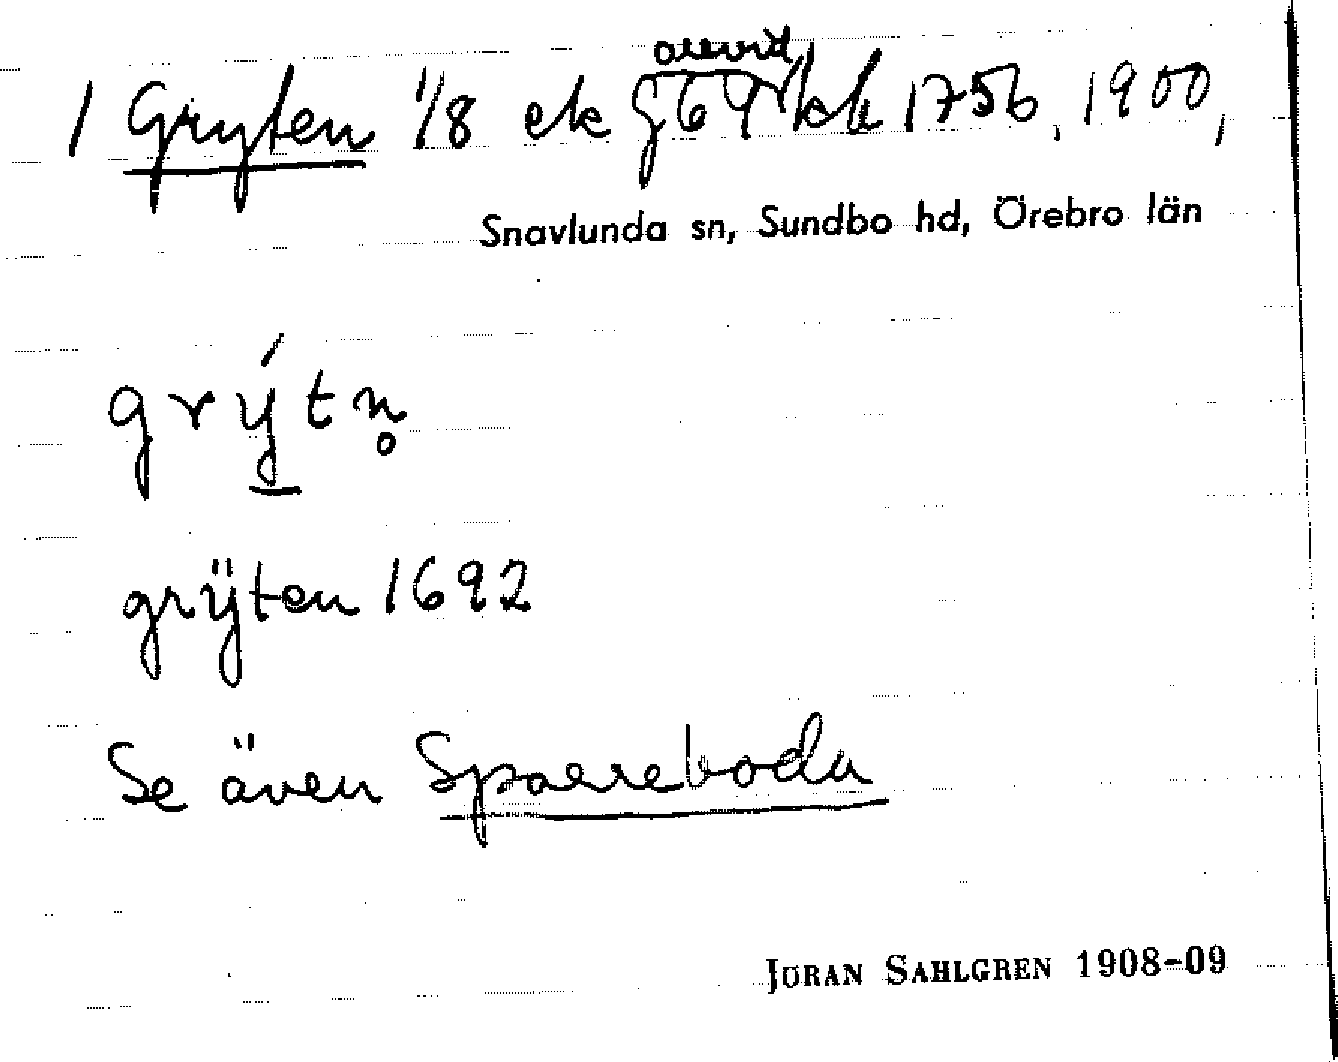 1 Gryten 1/8 ek J69 kk 1756, 1900,
Snavlunda sn, Sundbo hd, Örebro län
grýtn̥
grÿten 1692
Se även Sparreboda
JÖRAN SAHLGREN 1908-09